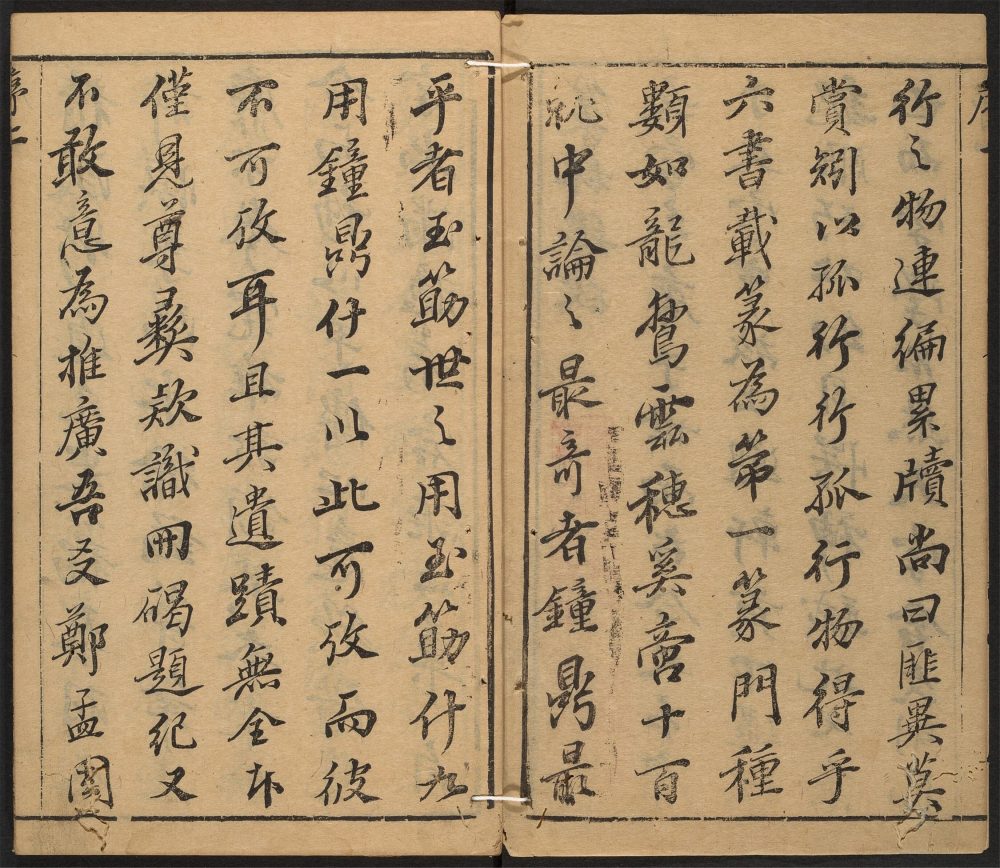 行之物連編累牘尚曰匪異莫
賞矧以孤行行孤行物得乎
六書載篆為第一篆門種
數如龍鸞雲穗奚啻十百
中論之最奇者鐘鼎最
平者玉筯世之用玉筯什九
用鐘鼎什一以此可攷而彼
不可攷耳且其遺蹟無全本
僅見尊彝款識冊碣題紀又
不敢意為推廣吾友鄭孟
序二